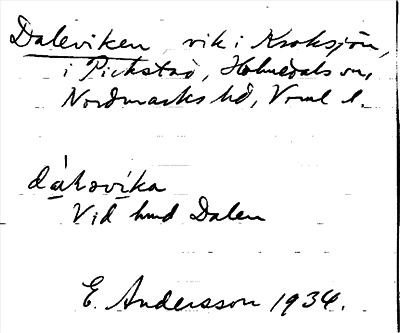 Daleviken, vik i Kroksjön,
i Pickstad, Holmedals sn,
Nordmarks hd, Vrml l.
dáloví̱ka
Vid hmd Dalen
E. Andersson 1934.